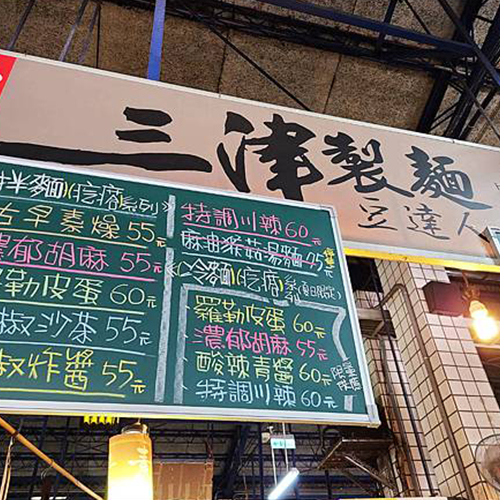 三津製麵
立達人
拌麵(疙瘩系列)
古早素燥55元
濃郁胡麻55元
羅勒皮蛋60元
椒沙茶55元
椒炸醬55元
特調川辣60元
麻油 湯麵95元
冷麵(疙瘩)系列
羅勒皮蛋60元
濃郁胡麻55元
酸辣青醬60元
特調川辣60元
限量供應